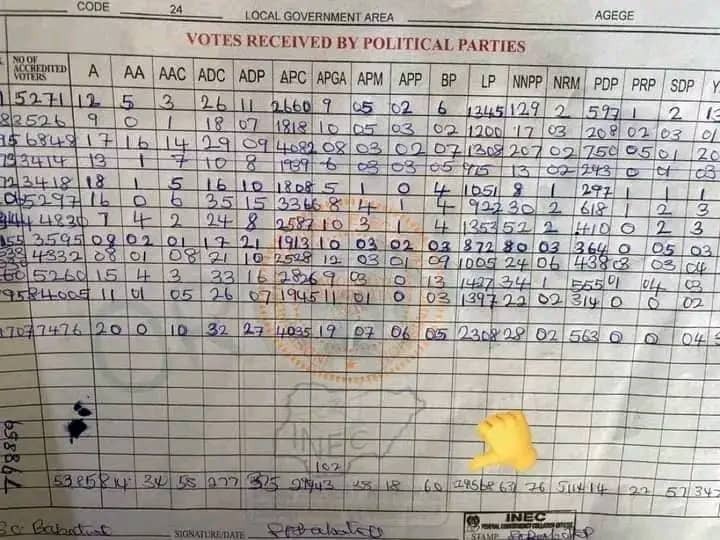 CODE 24 LOCAL GOVERNMENT AREA AGEGE
VOTES RECEIVED BY POLITICAL PARTIES
NO OF ACCREDITED VOTERS A AA AAC ADC ADP APC APGA APM APP BP LP NNPP NRM PDP PRP SDP Y
5271 12 5 3 26 11 2660 9 05 02 6 1345 129 2 597 1 2 13
3526 9 0 1 18 07 1818 10 05 03 02 1200 17 03 208 02 03 01
6848 17 16 14 29 09 4082 08 03 02 07 1308 207 02 750 05 01 20
3414 13 1 7 10 8 1939 6 03 03 05 915 13 02 243 0 01 03
3418 18 1 5 16 10 1808 5 1 0 4 1051 8 1 297 1 1 1
5297 16 0 6 35 15 3366 8 4 1 4 922 30 2 618 1 2 3
4830 7 4 2 24 8 2587 10 3 1 4 1353 52 2 410 0 2 3
3595 08 02 01 17 21 1913 10 03 02 03 872 80 03 364 0 05 03
4332 08 01 08 21 10 2528 12 03 01 09 1005 24 06 438 03 03 04
5260 15 4 3 33 16 2826 9 03 0 13 1427 34 1 555 01 04 03
4005 11 01 05 26 07 1945 11 01 0 03 1397 22 02 314 0 0 02
7476 20 0 10 32 27 4035 19 07 06 05 2308 28 02 563 0 0 04
INEC
102
34 58 277 38 18 60 76 14 22 57
Babatunde SIGNATURE/DATE
INEC
STAMP